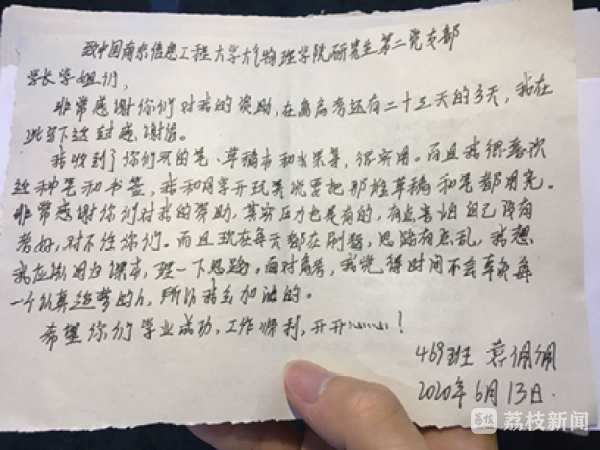 致中国南京信息工程大学大气物理学院研究生第二党支部
学长学姐们,
非常感谢你们对我的资助,在离高考还有二十三天的今天,我在
此写下这封感谢信。
我收到了你们买的笔、草稿本和水果等,很实用。而且我很喜欢
这种笔和书签,我和同学开玩笑说要把那些草稿和笔都用完。
非常感谢你们对我的资助,其实压力也是有的,有点害怕自己没有
考好,对不住你们。而且现在每天都在刷题,思路有点乱,我想
我应该回归课本,理一下思路。面对高考,我觉得时间不会辜负每
一个认真追梦的人,所以我会加油的。
希望你们学业成功,工作顺利,开开心心!
469班 佣佣
2020年6月13日.
荔枝 荔枝新闻